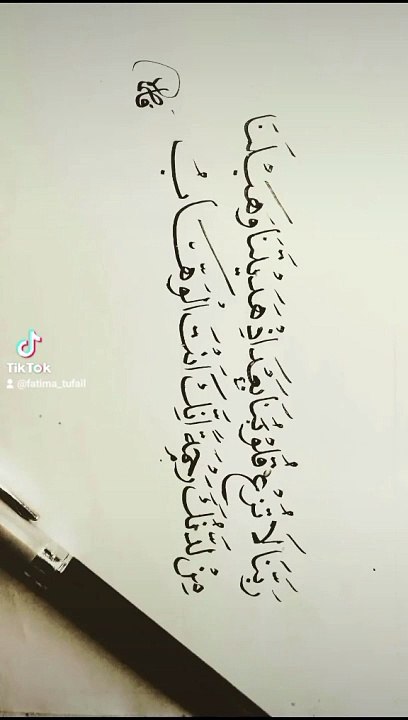 رَبَّنَا لَا تُزِغْ قُلُوْبَنَا بَعْدَ اِذْ هَدَيْتَنَا وَهَبْ لَنَا
مِنْ لَّدُنْكَ رَحْمَةً اِنَّكَ اَنْتَ الْوَهَّابُ
TikTok
@fatima_tufail